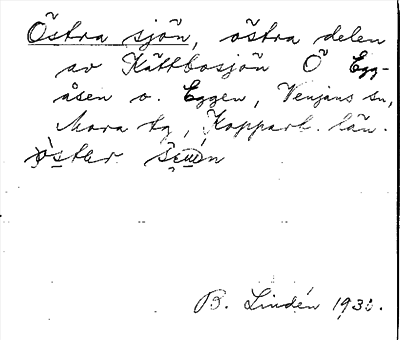 Östra sjön, östra delen
av Kättbosjön Ö Egg-
åsen o. Eggen, Venjans sn,
Mora tg, Kopparb. län.
öster
B. Lindén 193